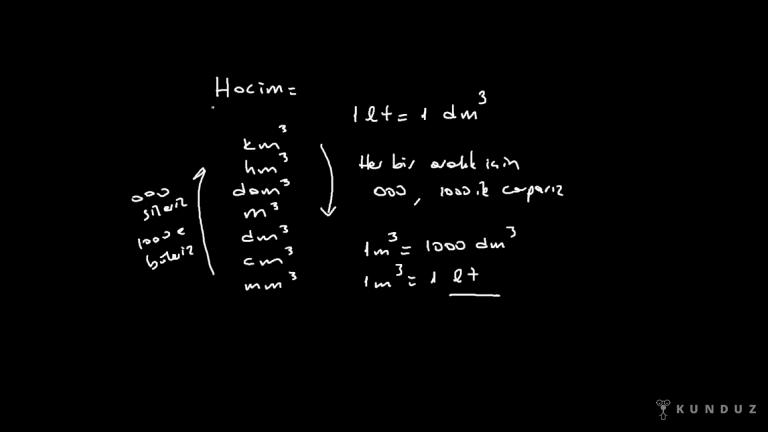 Hacim=
km³
hm³
dam³
m³
dm³
cm³
mm³
000
sileriz
1000 e
böleriz
1 lt = 1 dm³
Her bir aralık için
000, 1000 ile çarparız
1m³ = 1000 dm³
1m³ = 1 lt
KUNDUZ